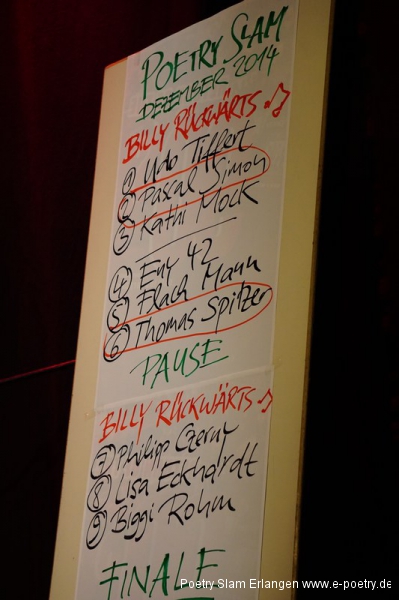 POETRY SLAM
DEZEMBER 2014
BILLY RÜCKWÄRTS ♫
① Udo Tiffert
② Pascal Simon
③ Kathi Mock
④ Eny 42
⑤ Flach Mann
⑥ Thomas Spitzer
PAUSE
BILLY RÜCKWÄRTS ♪
⑦ Philipp Czerny
⑧ Lisa Eckhardt
⑨ Biggi Rohm
FINALE
Poetry Slam Erlangen www.e-poetry.de